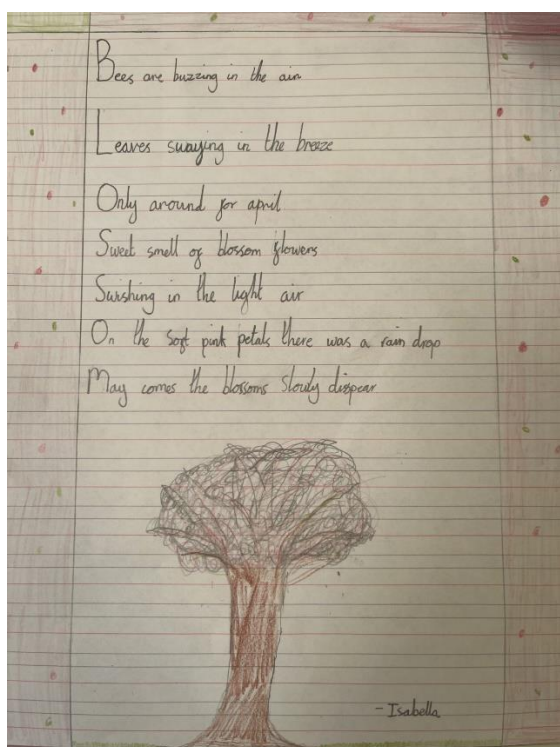 Bees are buzzing in the air
Leaves swaying in the breeze
Only around for april
Sweet smell of blossom flowers
Swishing in the light air
On the soft pink petals there was a rain drop
May comes the blossoms slowly disspear
- Isabella